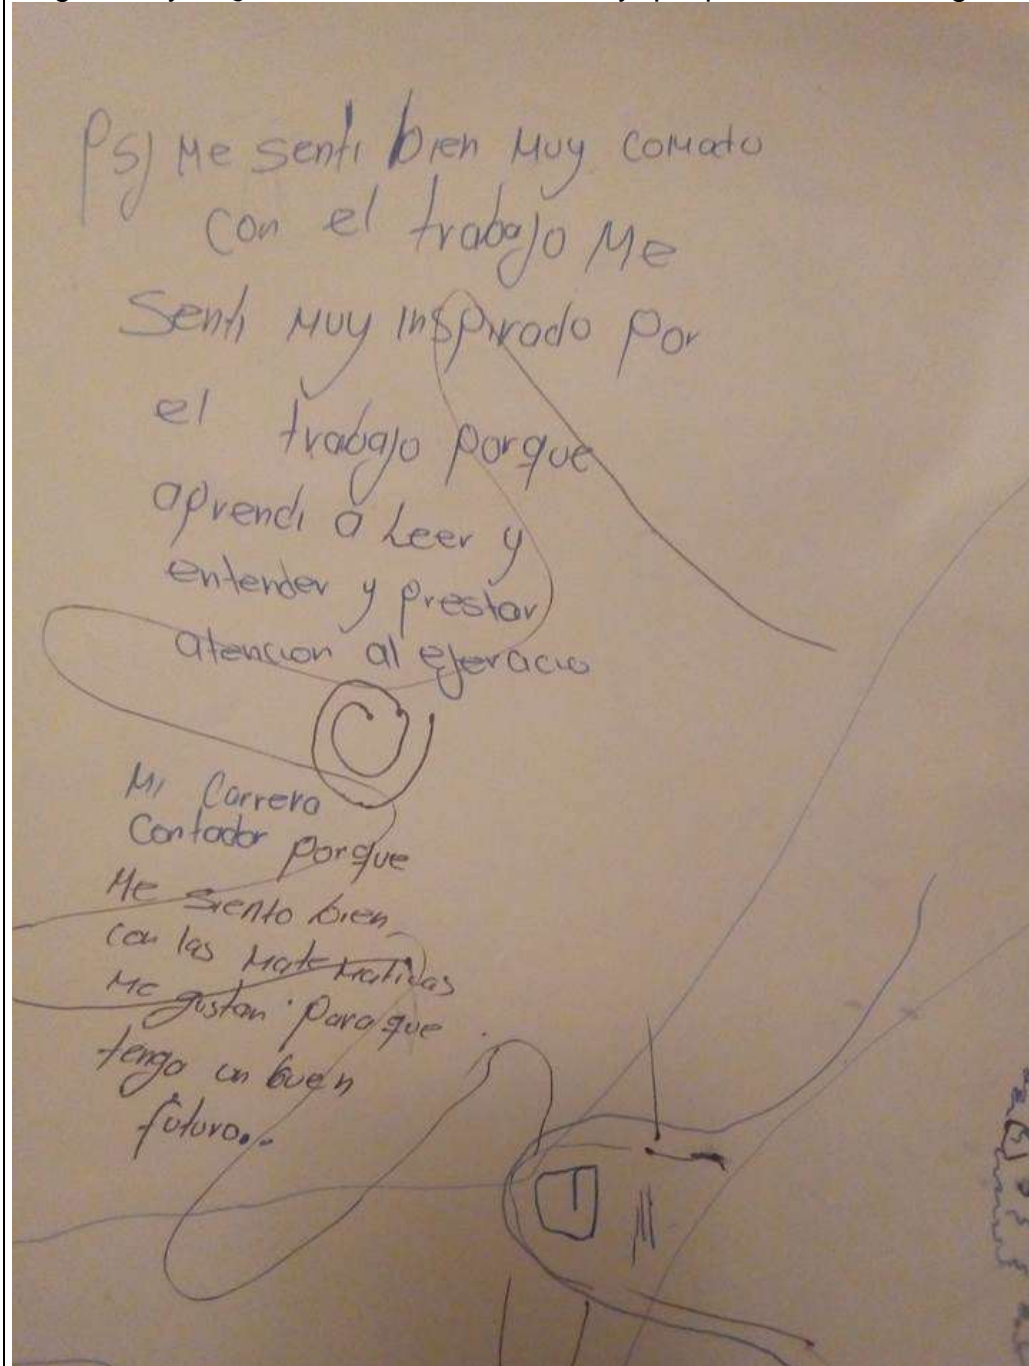 Ps) Me senti bien Muy comodo
con el trabajo Me
Senti Muy inspirado por
el trabajo porque
aprendi a Leer y
entender y prestar
atencion al ejercicio
Mi Carrera
Contador porque
Me siento bien
con las Matematicas
Me gustan para que
tengo un buen
futuro...